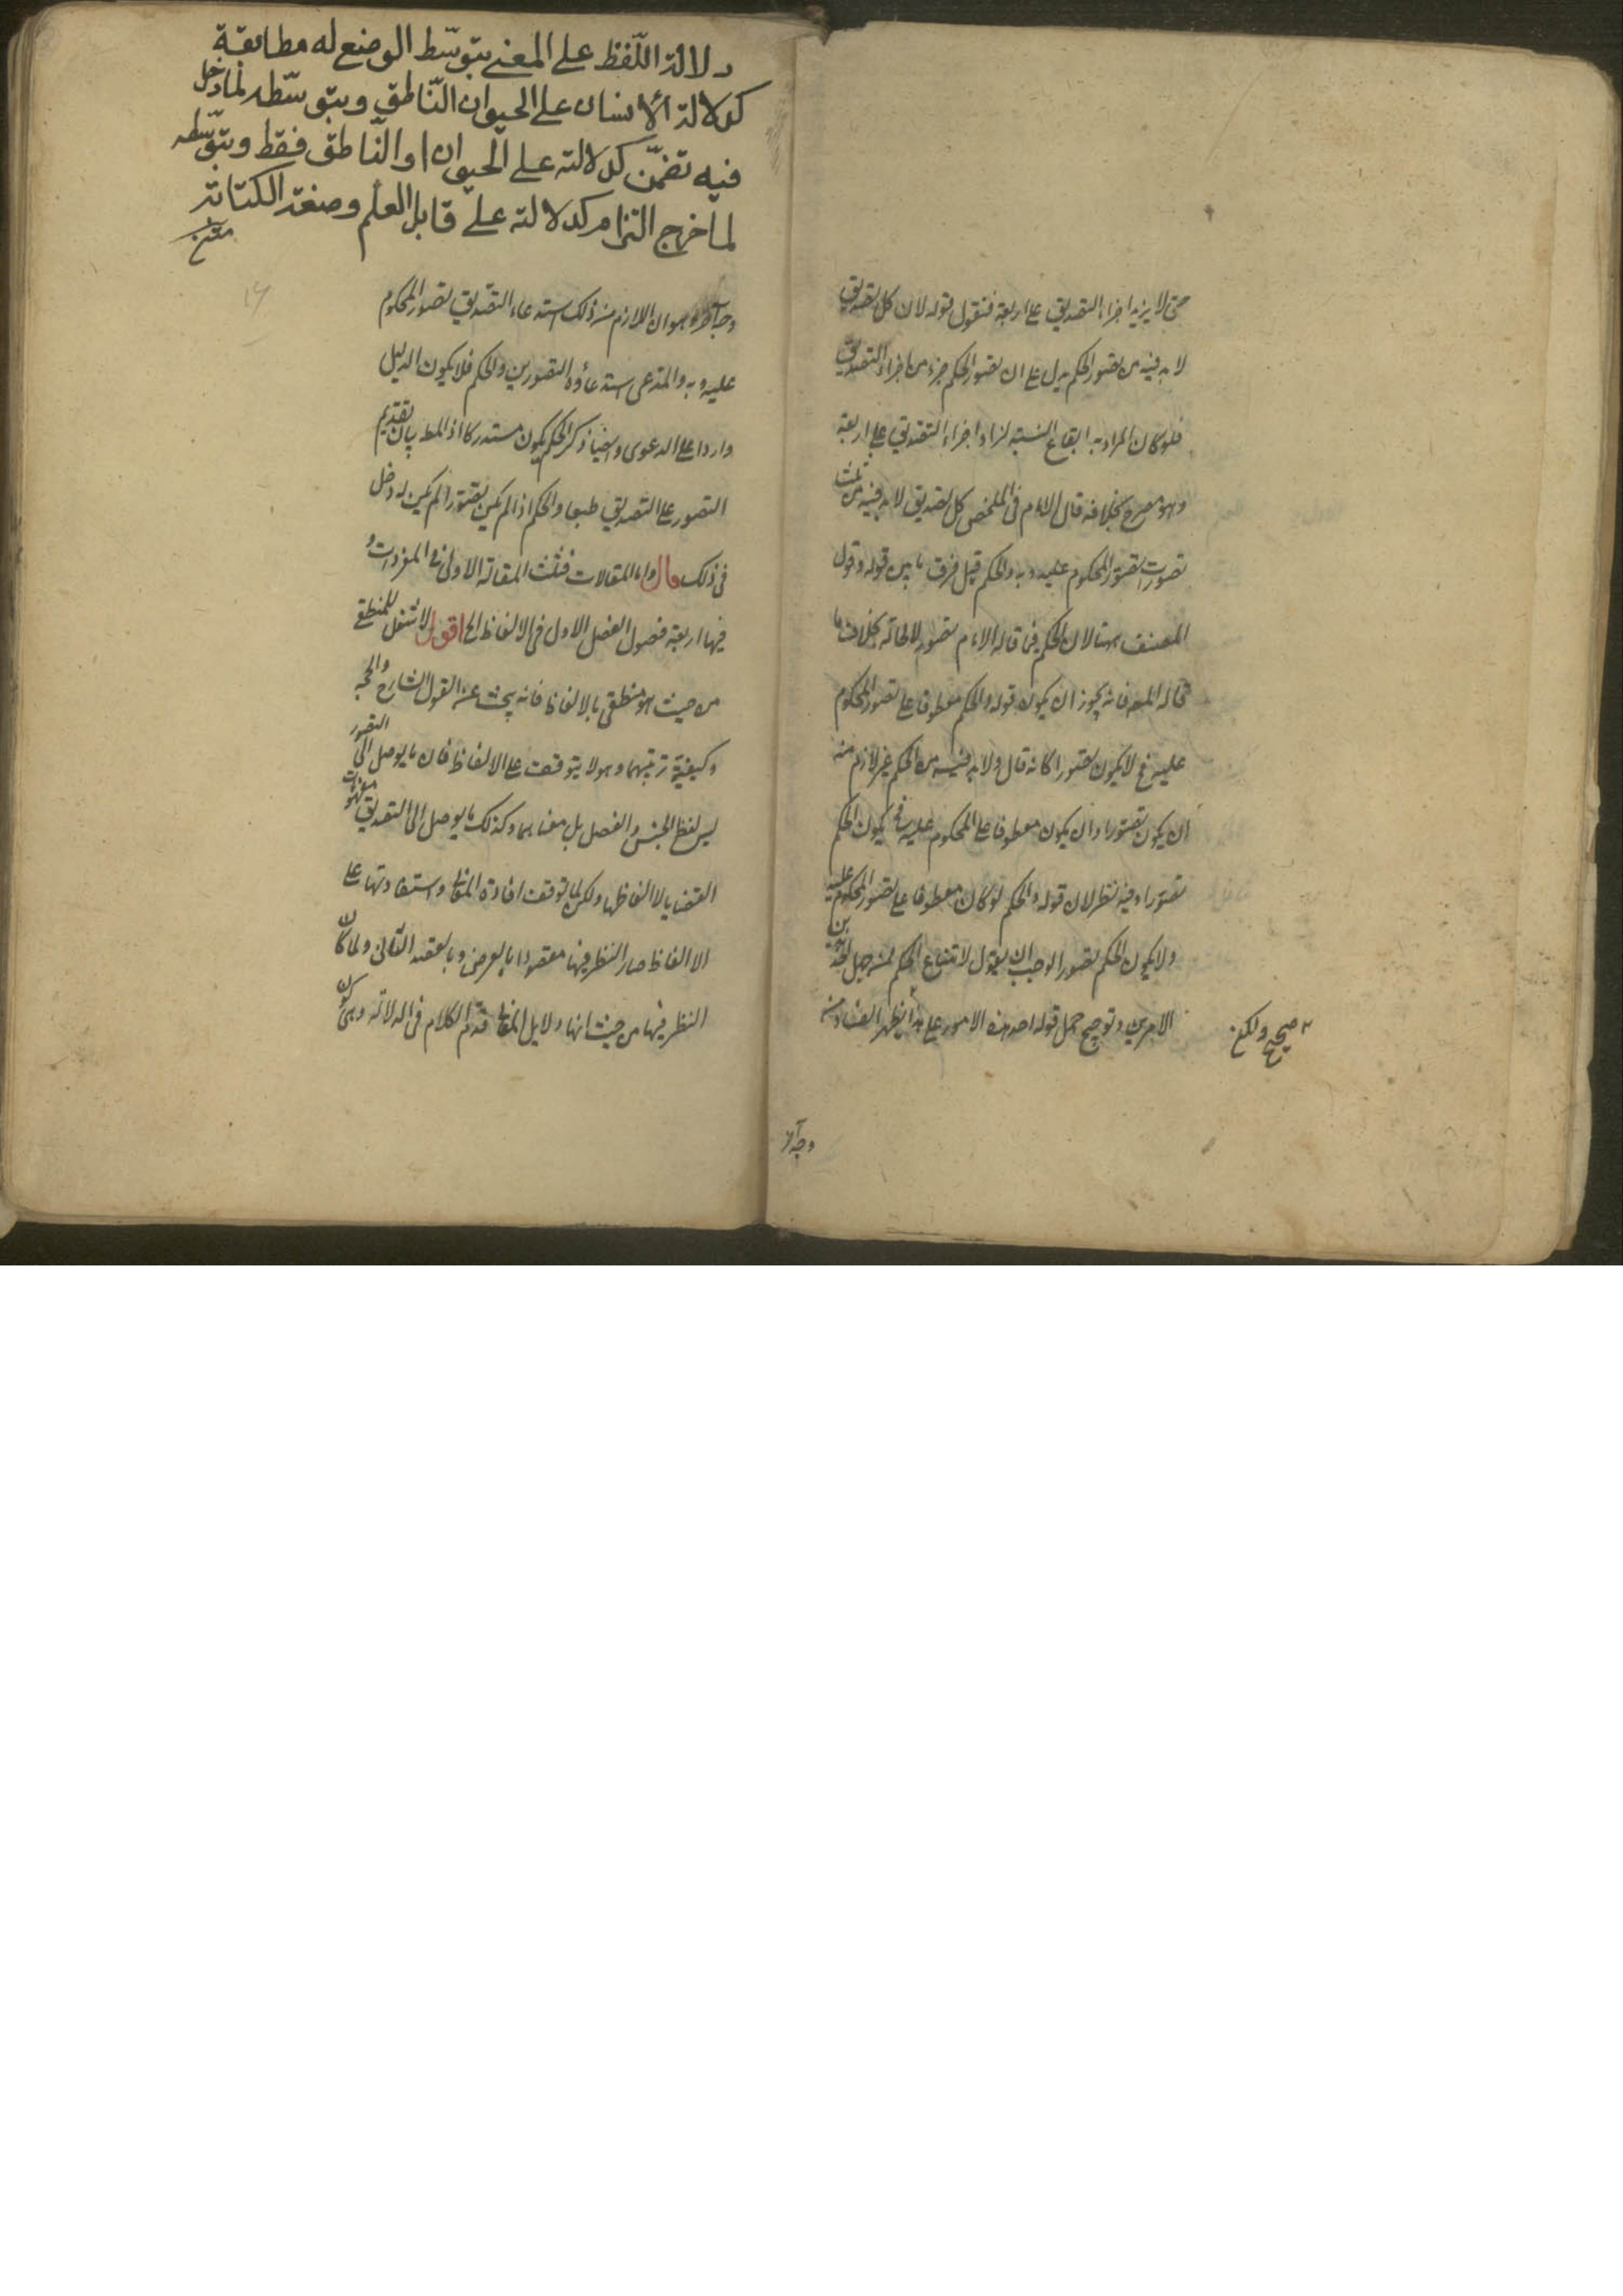 حتى لا يزيد اجزاء التصديق على اربعة فنقول قوله لان كل تصديق
لا بد فيه من تصور الحكم يدل على ان تصور الحكم جزء من اجزاء التصديق
فلو كان المراد به ايقاع النسبة لزاد اجزاء التصديق على اربعة
وهو مصرح بخلافه قال الامام فى الملخص كل تصديق لا بد فيه من ثلث
تصورات تصور المحكوم عليه وبه والحكم قيل فرق ما بين قوله وقول
المصنف ههنا لان الحكم فيما قاله الامام تصور لا محالة بخلاف ما
قاله المصـ فانه يجوز ان يكون قوله والحكم معطوفا على تصور المحكوم
عليه فح لا يكون تصورا كانه قال ولا بد فيه من الحكم غير لازم منه
ان يكون تصورا وان يكون معطوفا على المحكوم عليه فح يكون الحكم
تصورا وفيه نظر لان قوله والحكم لو كان معطوفا على تصور المحكوم عليه
ولا يكون الحكم تصورا لوجب ان يقول لامتناع الحكم ممن جهل احد هذين
الامرين وتوجيح حمل قوله احد هذه الامور على هذا يظهر الفساد منه
صحيح ولكن
وجه آخر
دلالة اللّفظ على المعنى بتوسّط الوضع له مطابقة
كدلالة الانسان على الحيوان النّاطق وبتوسّطه لما دخل
فيه تضمّن كدلالته على الحيوان او النّاطق فقط وبتوسّطه
لما خرج التزام كدلالته على قابل العلم وصنعة الكتابة
متن
١٦
وجه آخر وهو ان اللازم من ذلك استدعاء التصديق تصور المحكوم
عليه وبه والمدعى استدعاؤه التصورين والحكم فلا يكون الدليل
واردا على الدعوى وايضا ذكر الحكم يكون مستدركا اذ المط بيان تقديم
التصور على التصديق طبعا والحكم اذا لم يكن تصورا لم يكن له دخل
فى ذلك قال واما المقالات فثلث المقالة الاولى فى المفردات و
فيها اربعة فصول الفصل الاول فى الالفاظ الخ اقول لا شغل للمنطقى
من حيث هو منطقى بالالفاظ فانه يبحث عن القول الشارح والحجة
وكيفية ترتيبهما وهو لا يتوقف على الالفاظ فان ما يوصل الى التصور
ليس لفظ الجنس والفصل بل معناهما وكذلك ما يوصل الى التصديق مفهومات
القضايا لا الفاظها ولكن لما توقف افادة المعانى واستفادتها على
الالفاظ صار النظر فيها مقصودا بالعرض وبالقصد الثانى ولما كان
النظر فيها من حيث انها دلايل المعانى قدم الكلام فى الدلالة وهى كون